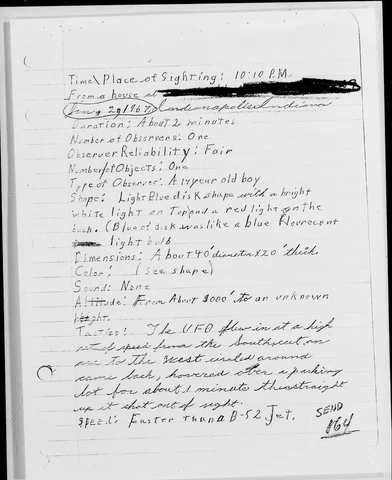 Time\Place of Sighting: 10:10 P.M.
From a house at
Indianapolis Indiana
Duration: About 2 minutes
Number of Observers: One
Observer Reliability: Fair
Number of Objects: One
Type of Observer: A 14 year old boy
Shape: Light Blue disk shape with a bright
white light on Top and a red light on the
back. (Blue of disk was like a blue flourecent
light bulb
Dimensions: About 40' diameter x 20' thick.
Color: (See shape)
Sound: None
Altitude: From About 3000' to an unknown
height.
Tactics: The UFO flew in at a high
rate of speed from the South, cut an
arc to the West circled around
came back, hovered over a parking
lot for about 1 minute then straight
up it shot out of sight.
SPEED: Faster than a B-52 Jet.
SEND
164